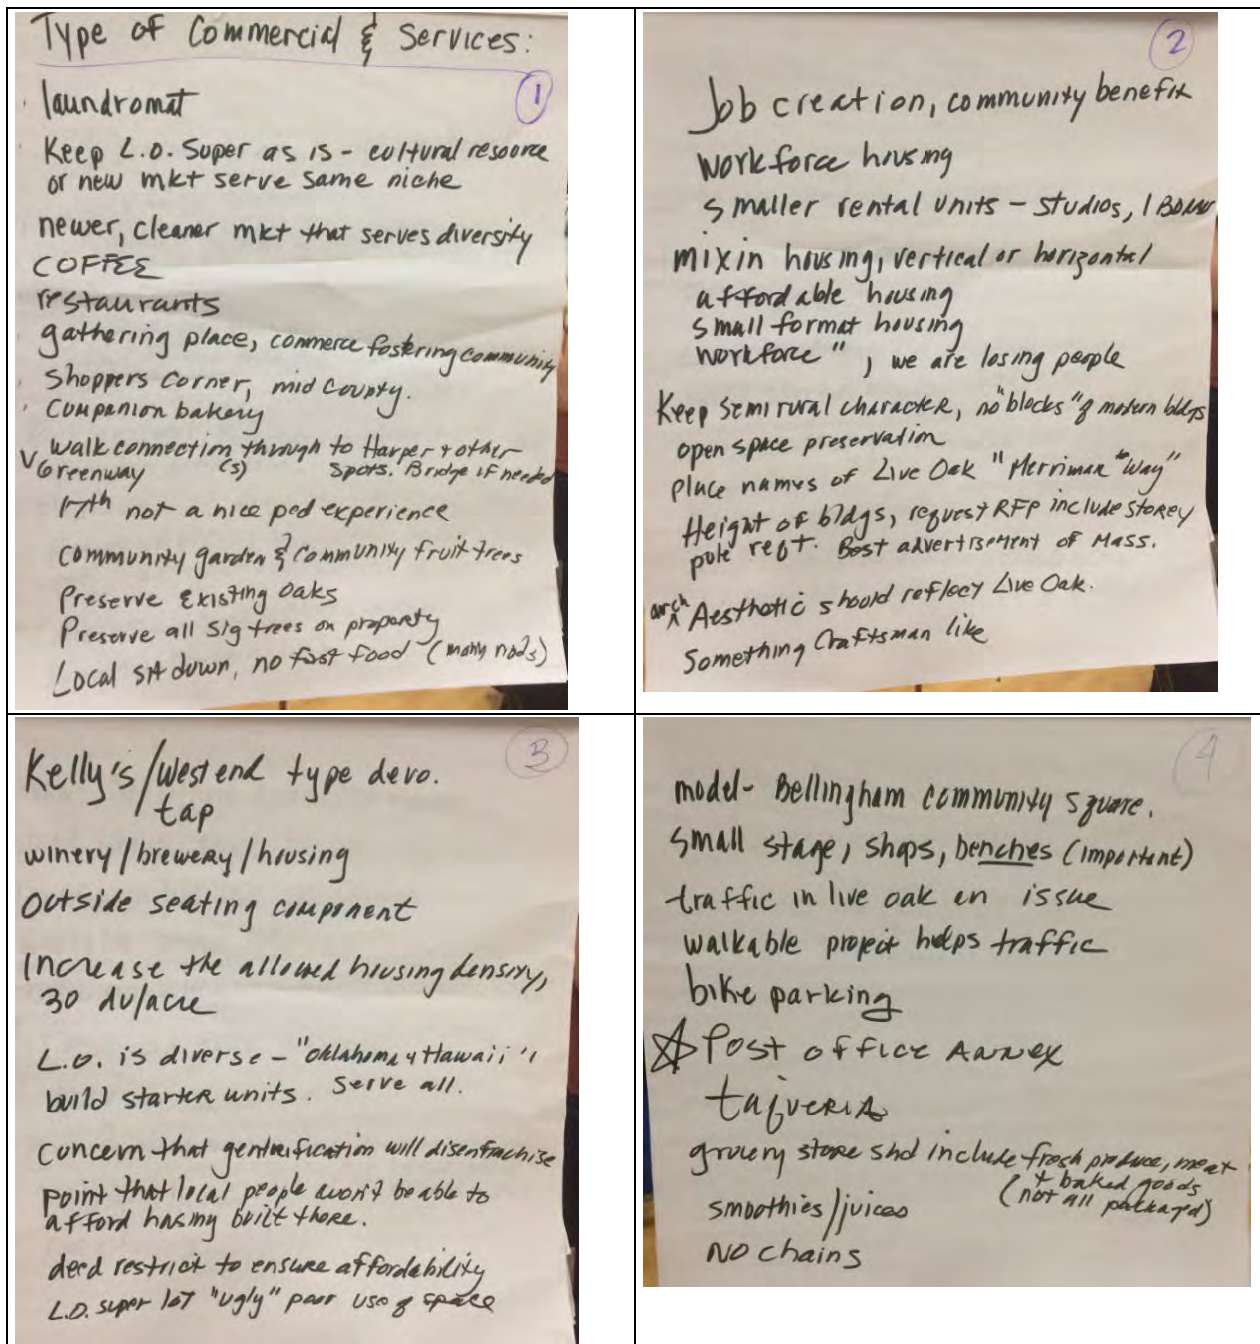 Type of Commercial & Services:
1
laundromat
Keep L.O. Super as is - cultural resource
or new mkt serve same niche
newer, cleaner mkt that serves diversity
COFFEE
restaurants
gathering place, commerce fostering community
Shoppers Corner, mid County.
Companion bakery
walk connection(s) through to Harper + other
Greenway spots. Bridge if needed
17th not a nice ped experience
community garden & community fruit trees
Preserve existing oaks
Preserve all sig trees on property
Local sit down, no fast food (many nods)
2
Job creation, community benefit
workforce housing
smaller rental units - studios, 1 BDRM
mix in housing, vertical or horizontal
affordable housing
small format housing
workforce ", we are losing people
Keep semi rural character, no "blocks" of modern bldgs
open space preservation
place names of Live Oak "Merriman Way"
Height of bldgs, request RFP include storey
pole reqt. Best advertisement of Mass.
arch Aesthetic should reflect Live Oak.
Something Craftsman like
3
Kelly's/West end type devo.
tap
winery/brewery/housing
outside seating component
Increase the allowed housing density,
30 du/acre
L.O. is diverse - "Oklahoma & Hawaii"
build starter units. Serve all.
Concern that gentrification will disenfrachise
point that local people won't be able to
afford housing built there.
deed restrict to ensure affordability
L.O. super lot "ugly" poor use of space
4
model- Bellingham community square.
small stage, shops, benches (important)
traffic in live oak an issue
walkable project helps traffic
bike parking
☆ Post office Annex
taqueria
grocery store shd include fresh produce, meat
+ baked goods
(not all packaged)
smoothies/juices
NO chains